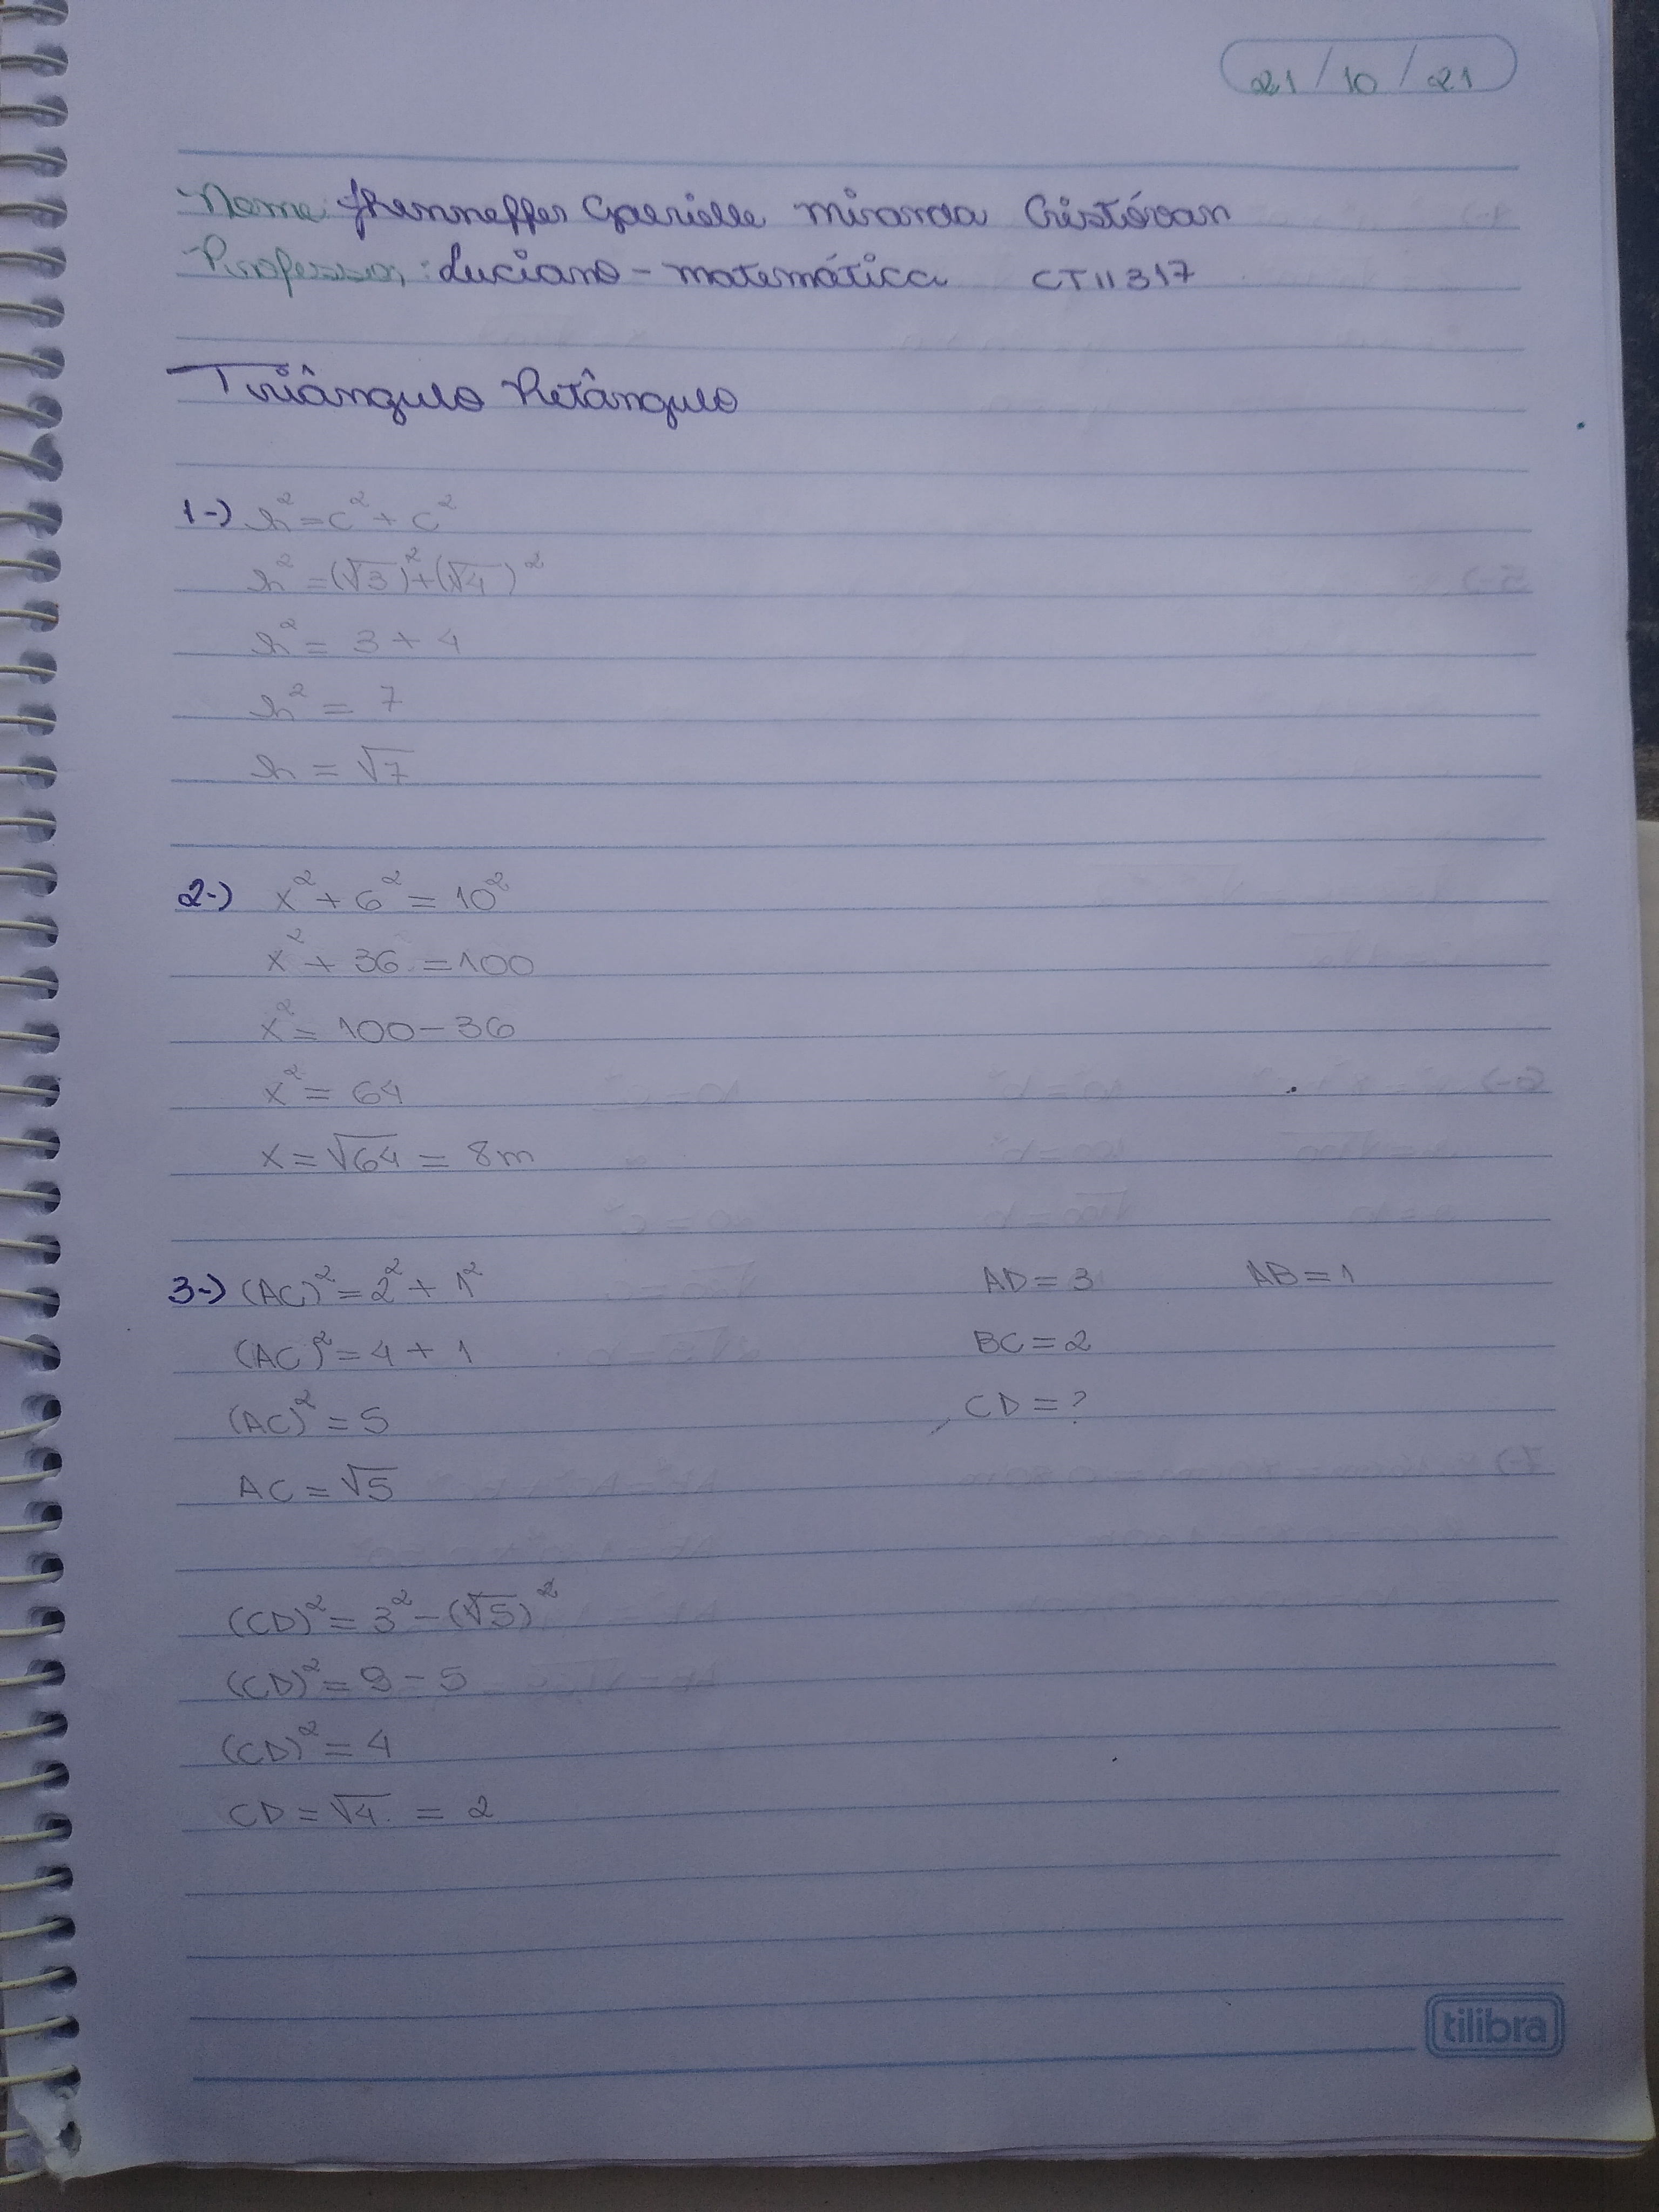 21/10/21
Nome: Jhenneffer Gabrielle Miranda Cristóvan
Professor: Luciano - matemática CTII 317
Triângulo Retângulo
1-) h² = c² + c²
h² = (√3)² + (√4)²
h² = 3 + 4
h² = 7
h = √7
2-) x² + 6² = 10²
x² + 36 = 100
x² = 100 - 36
x² = 64
x = √64 = 8m
3-) (AC)² = 2² + 1² AD = 3 AB = 1
(AC)² = 4 + 1 BC = 2
(AC)² = 5 CD = ?
AC = √5
(CD)² = 3² - (√5)²
(CD)² = 9 - 5
(CD)² = 4
CD = √4 = 2
tilibra